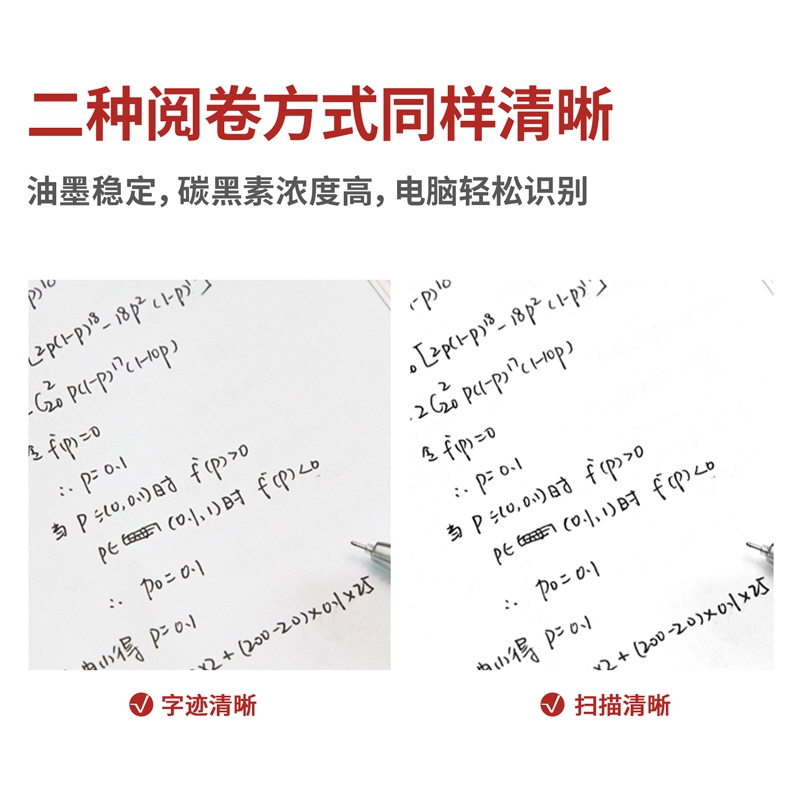 二种阅卷方式同样清晰
油墨稳定，碳黑素浓度高，电脑轻松识别
[2p(1-p)¹⁸-18p²(1-p)¹⁷]
2C²₂₀ p(1-p)¹⁷(1-10p)
令 f'(p)=0
∴ p=0.1
当 p∈(0,0.1)时 f'(p)>0
p∈ (0.1,1)时 f'(p)<0
∴ p₀=0.1
得 p=0.1
×2+(200-20)×0.1×25
-p)¹⁸
[2p(1-p)¹⁸-18p²(1-p)¹⁷]
.2C²₂₀ p(1-p)¹⁷(1-10p)
令 f'(p)=0
∴ p=0.1
当 p∈(0,0.1)时 f'(p)>0
p∈ (0.1,1)时 f'(p)<0
∴ p₀=0.1
得 p=0.1
×2+(200-20)×0.1×25
字迹清晰
扫描清晰